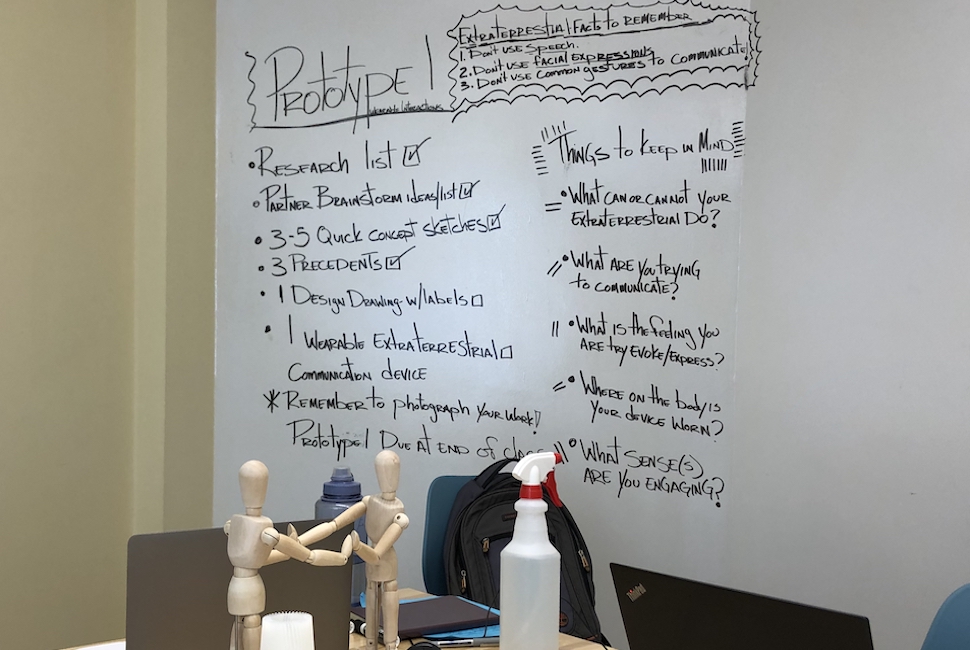 Prototype 1
Extraterrestial Facts to Remember
1. Don't use speech.
2. Don't use facial expressions
3. Don't use common gestures to communicate!
• Research list ☑
• Partner Brainstorm ideas/list ☑
• 3-5 Quick concept sketches ☑
• 3 Precedents ☑
• 1 Design Drawing w/labels ☐
• 1 Wearable Extraterrestrial ☐
Communication device
* Remember to photograph your work!
Prototype 1 Due at end of class
Things to keep in Mind
= • What can or cannot your
Extraterrestrial Do?
// • What are you trying
to communicate?
|| • What is the feeling you
are try evoke/express?
= • Where on the body is
your device worn?
\\ • What sense(s)
are you engaging?
ThinkPad